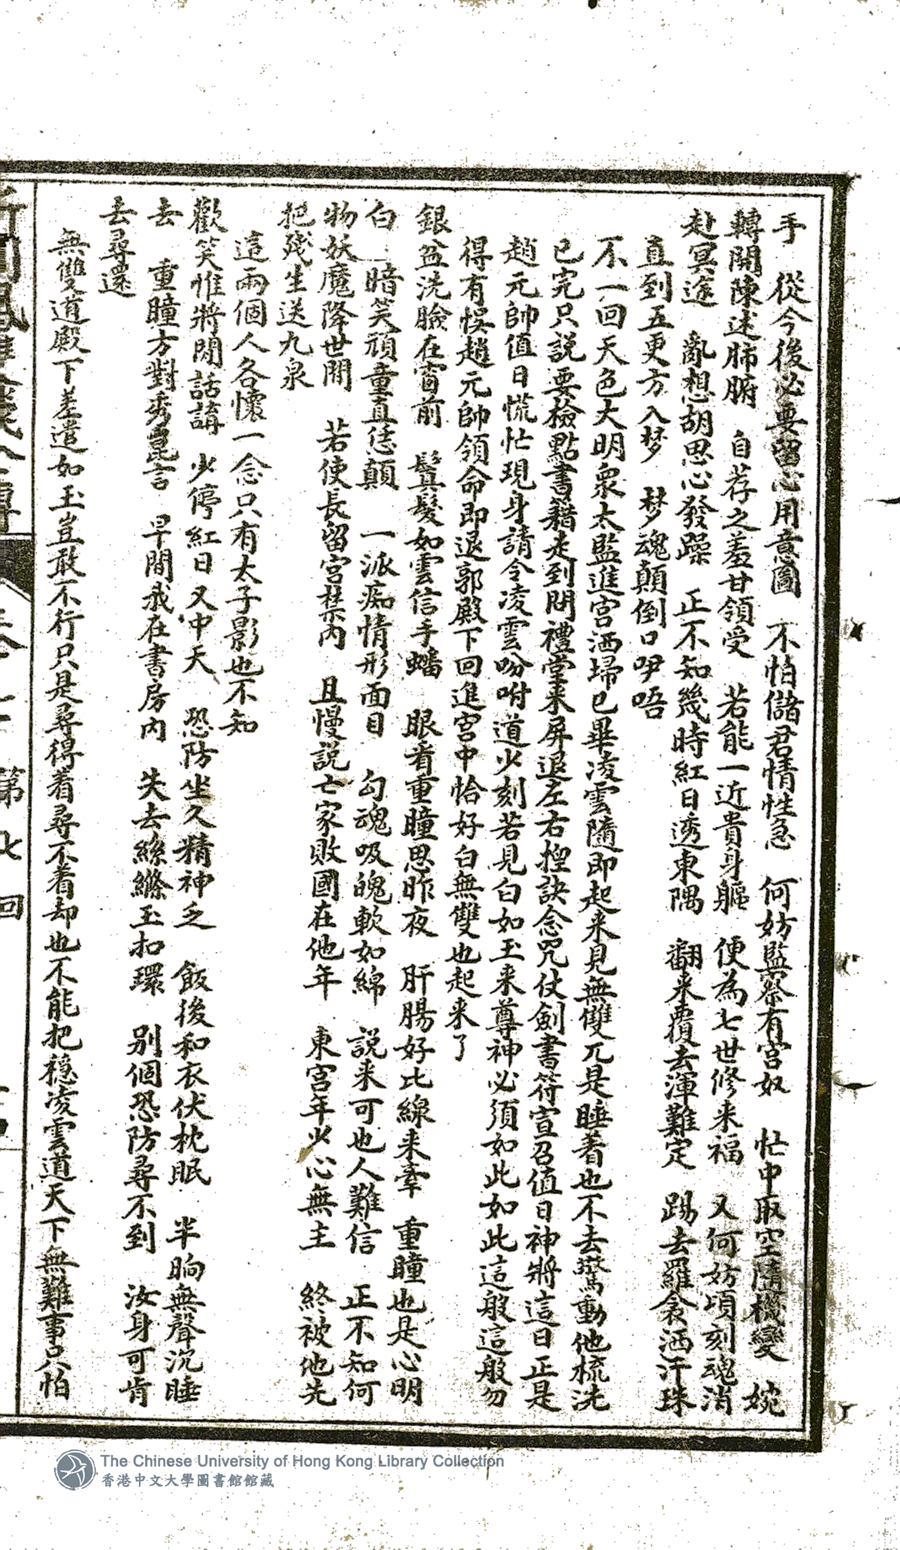 手　從今後必要留心用意圖　不怕儲君情性急　何妨監祭有宮奴　忙中取空隨機變　婉
轉開陳述肺腑　自荐之羞甘領受　若能一近貴身軀　便為七世修来福　又何妨頃刻魂消
赴冥途　亂想胡思心發躁　正不知幾時紅日透東隅　翻来覆去渾難定　踢去羅衾洒汗珠
直到五更方入梦　梦魂顛倒口咿唔
不一回天色大明衆太監進宮洒埽已畢凌雲隨即起来見無雙兀是睡着也不去驚動他梳洗
已完只說要檢點書籍走到問禮堂来屏退左右揑訣念咒仗劍書符宣召值日神將這日正是
趙元帥值日慌忙現身請令凌雲吩咐道少刻若見白如玉来尊神必須如此如此這般這般勿
得有悞趙元帥領命即退郭殿下回進宮中恰好白無雙也起来了
銀盆洗臉在窗前　鬓髮如雲信手蟠　眼看重瞳思昨夜　肝腸好比線来牽　重瞳也是心明
白　暗笑頑童真恁顛　一派痴情形面目　勾魂吸魄軟如綿　說来可也人難信　正不知何
物妖魔降世間　若使長留宮禁內　且慢説亡家敗國在他年　東宮年少心無主　終被他先
把殘生送九泉
這兩個人各懷一念只有太子影也不知
歡笑惟將閒話講　少停紅日又中天　恐防坐久精神乏　飯後和衣伏枕眠　半晌無聲沉睡
去　重瞳方對秀崑言　早間我在書房內　失去絲縧玉扣環　别個恐防尋不到　汝身可肯
去尋還
無雙道殿下差遣如玉豈敢不行只是尋得着尋不着却也不能把穩凌雲道天下無難事只怕
第七回
The Chinese University of Hong Kong Library Collection
香港中文大學圖書館館藏